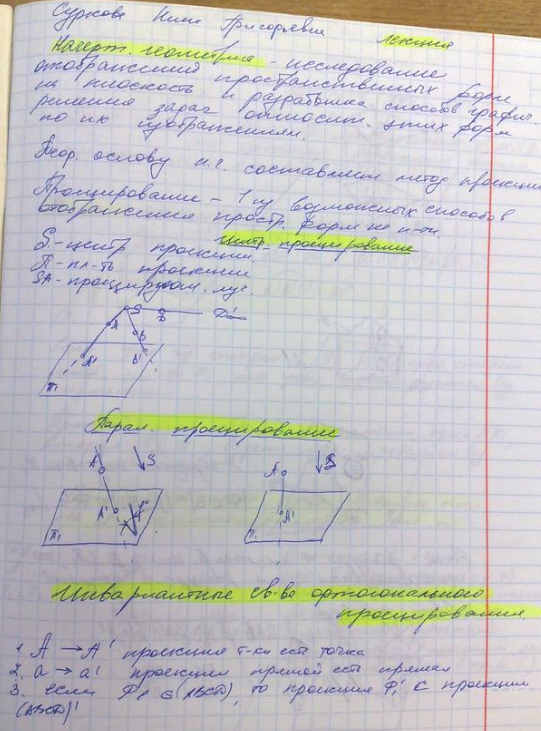 Суркова Нина Григорьевна
лекция
Начерт. геометрия - исследование
отображений пространственных форм
на плоскость и разработка способов графич.
решения задач относит. этих форм
по их изображениям.
Теор. основу н.г. составляет метод проекции
Проецирование - 1 из возможных способов
отображения простр. форм на п-ти.
Центр. проецирование
S - центр проекции.
П - пл-ть проекции
SA - проецирующ. луч
S D D'∞
A B
A' B'
П₁
Парал. проецирование
A S A S
A' A'
П₁ П₁
Инвариантные св-ва ортогонального
проецирования.
1. A → A' проекция т-ки есть точка
2. a → a' проекция прямой есть прямая
3. если ∈ (ABCD), то проекция ∈ проекции
(ABCD)'